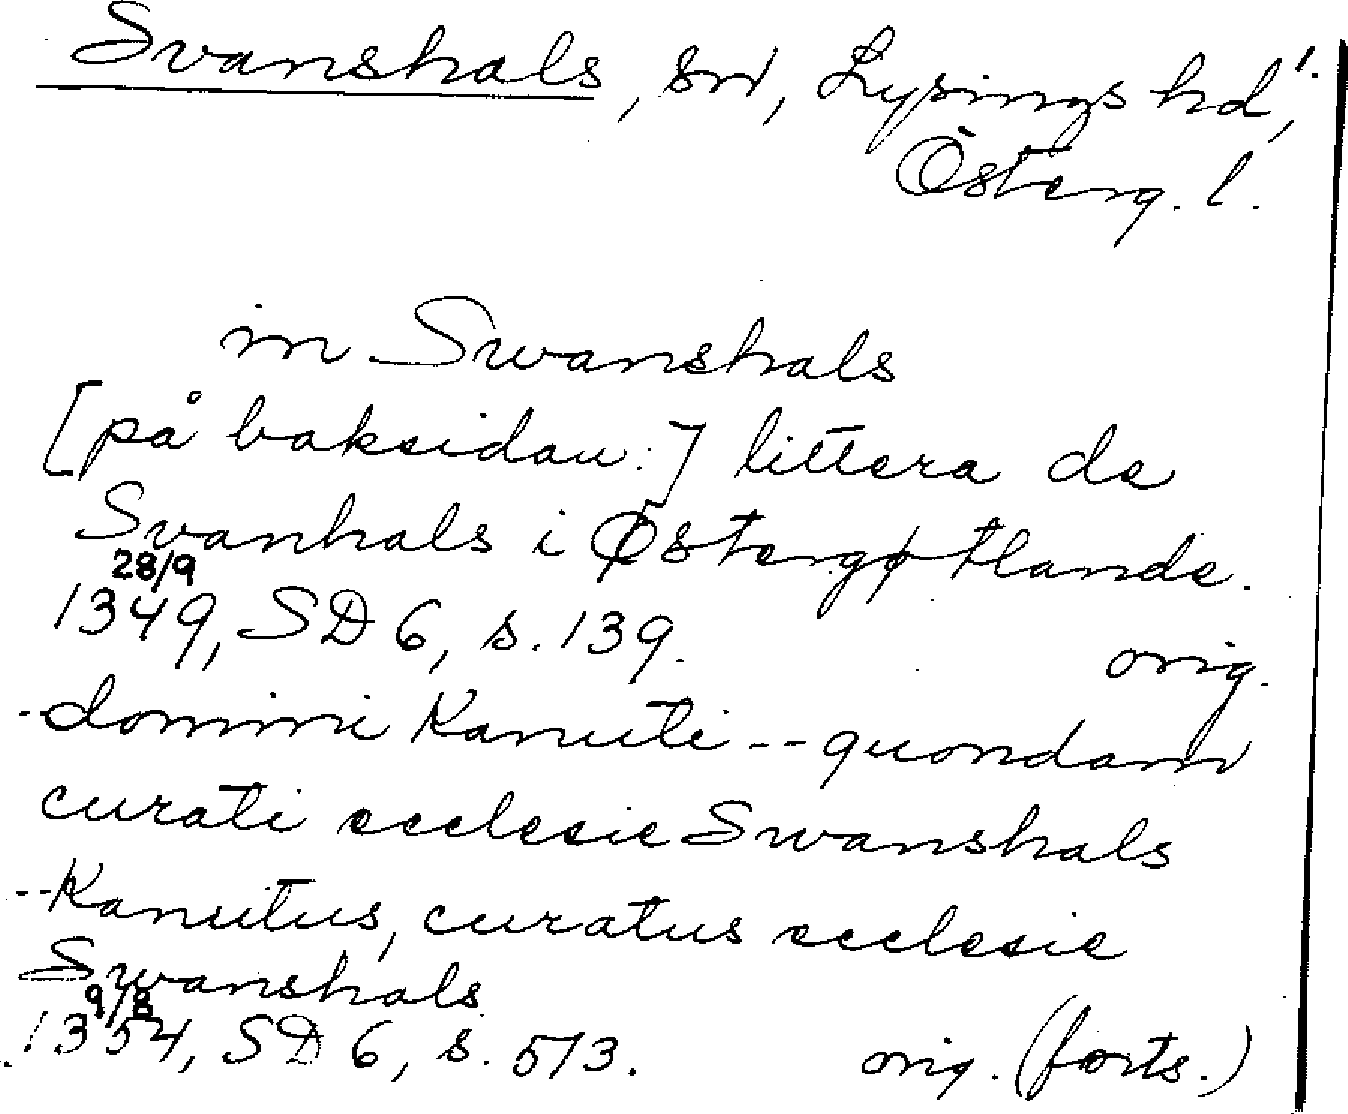 Svanshals, sn, Lysings hd,
Österg. l.
in Swanshals
[på baksidan:] littera de
Svanhals i Østergøtlande.
28/9
1349, SD 6, s. 139. orig.
-domini Kanuti -- quondam
curati ecclesie Swanshals
--Kanutus, curatus ecclesie
Swanshals
9/8
1354, SD 6, s. 513. orig. (forts.)